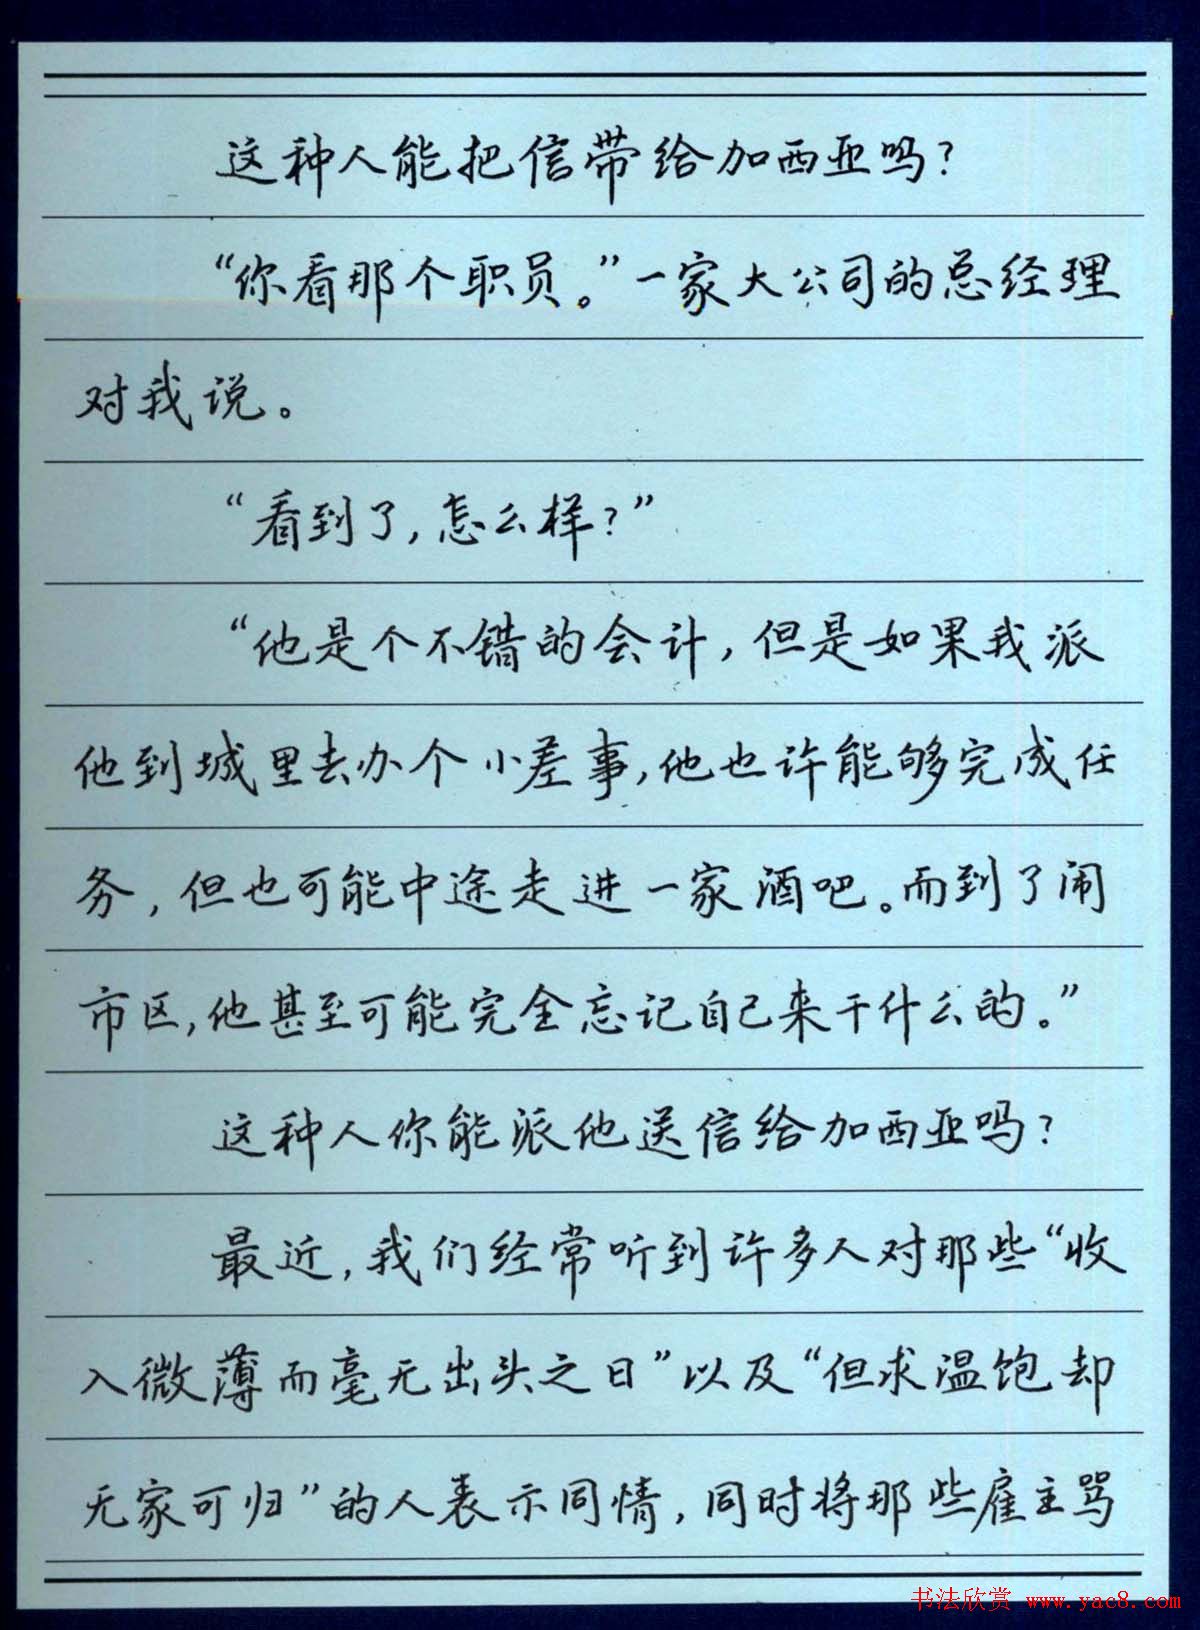 这种人能把信带给加西亚吗？
“你看那个职员。”一家大公司的总经理
对我说。
“看到了，怎么样？”
“他是个不错的会计，但是如果我派
他到城里去办个小差事，他也许能够完成任
务，但也可能中途走进一家酒吧。而到了闹
市区，他甚至可能完全忘记自己来干什么的。”
这种人你能派他送信给加西亚吗？
最近，我们经常听到许多人对那些“收
入微薄而毫无出头之日”以及“但求温饱却
无家可归”的人表示同情，同时将那些雇主骂
书法欣赏 www.yac8.com